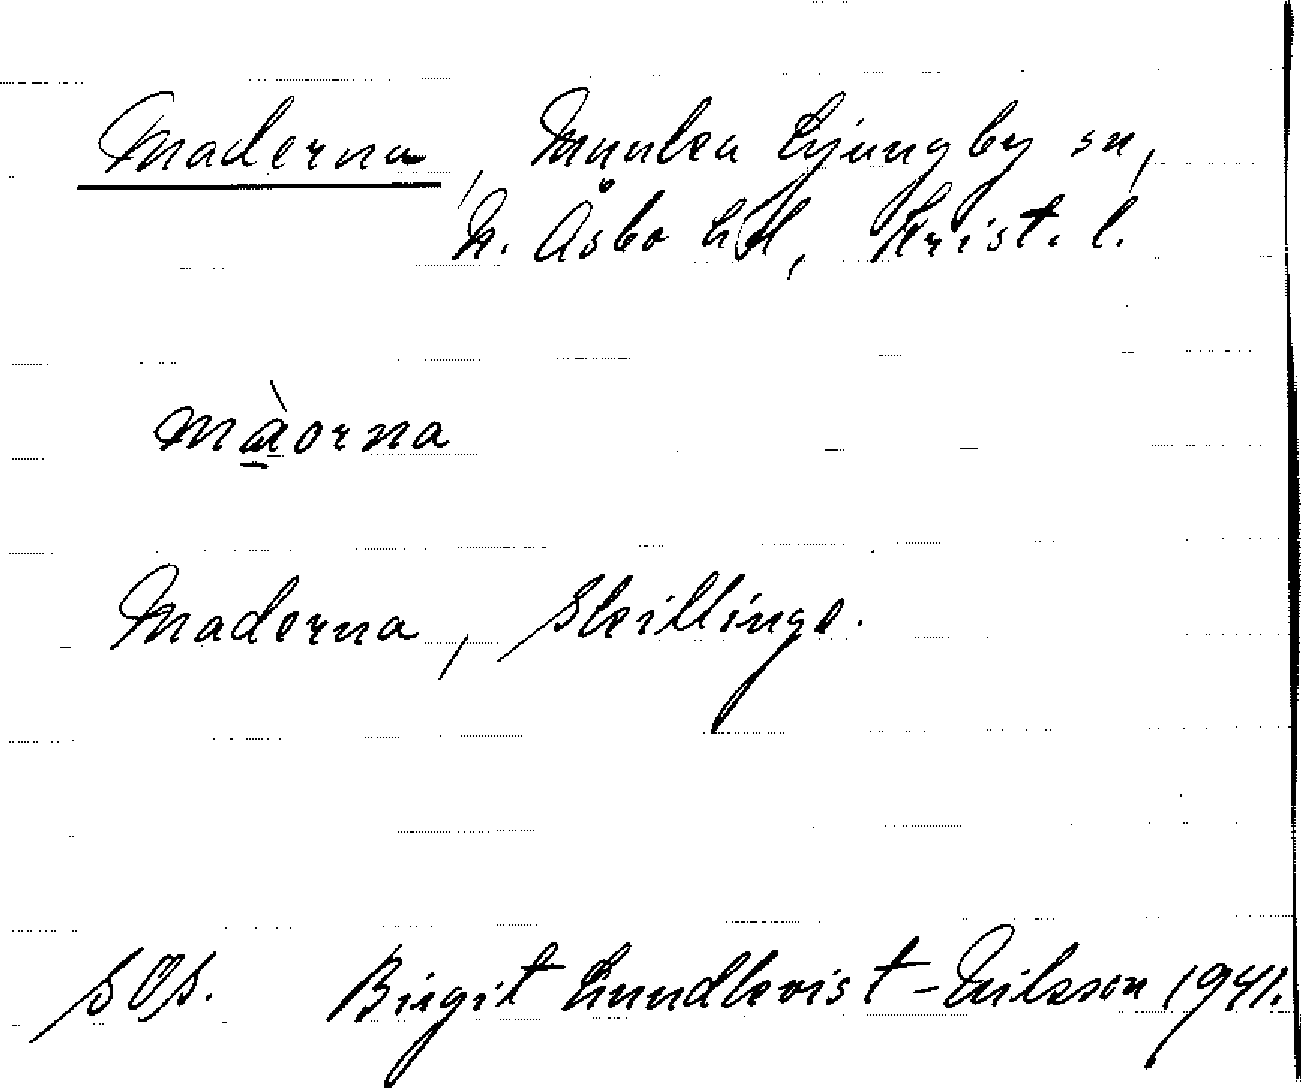 Maderna, Munka Ljungby sn,
N. Åsbo hd, Krist. l.
màorna
Maderna, Skillinge.
SOS. Birgit Lundkvist-Nilsson 1941.